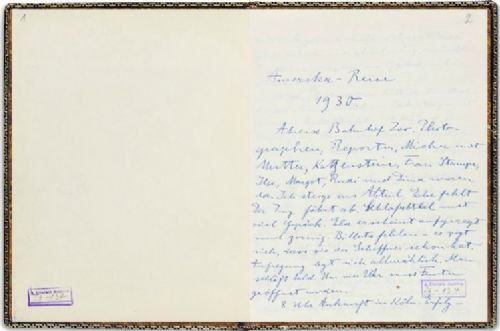 1
2
Amerika-Reise
1930.
Abend Bahnhof Zoo. Photo-
graphen, Reporter, Mischa mit
Mutter, Katzenstein, Frau
Ilse, Margot, Rudi und Dima waren
da. Ich steige ins Abteil. Else fehlt
Der Zug fährt ab. mit
viel Gepäck. Else erscheint aufgeregt
und zornig. Billets fehlen – es zeigt
sich, dass sie der Schaffner schon hat.
Aufregung legt sich allmählich. Man
schläft bald. Um Uhr muss Fenster
geöffnet werden.
8 Uhr Ankunft in Köln.